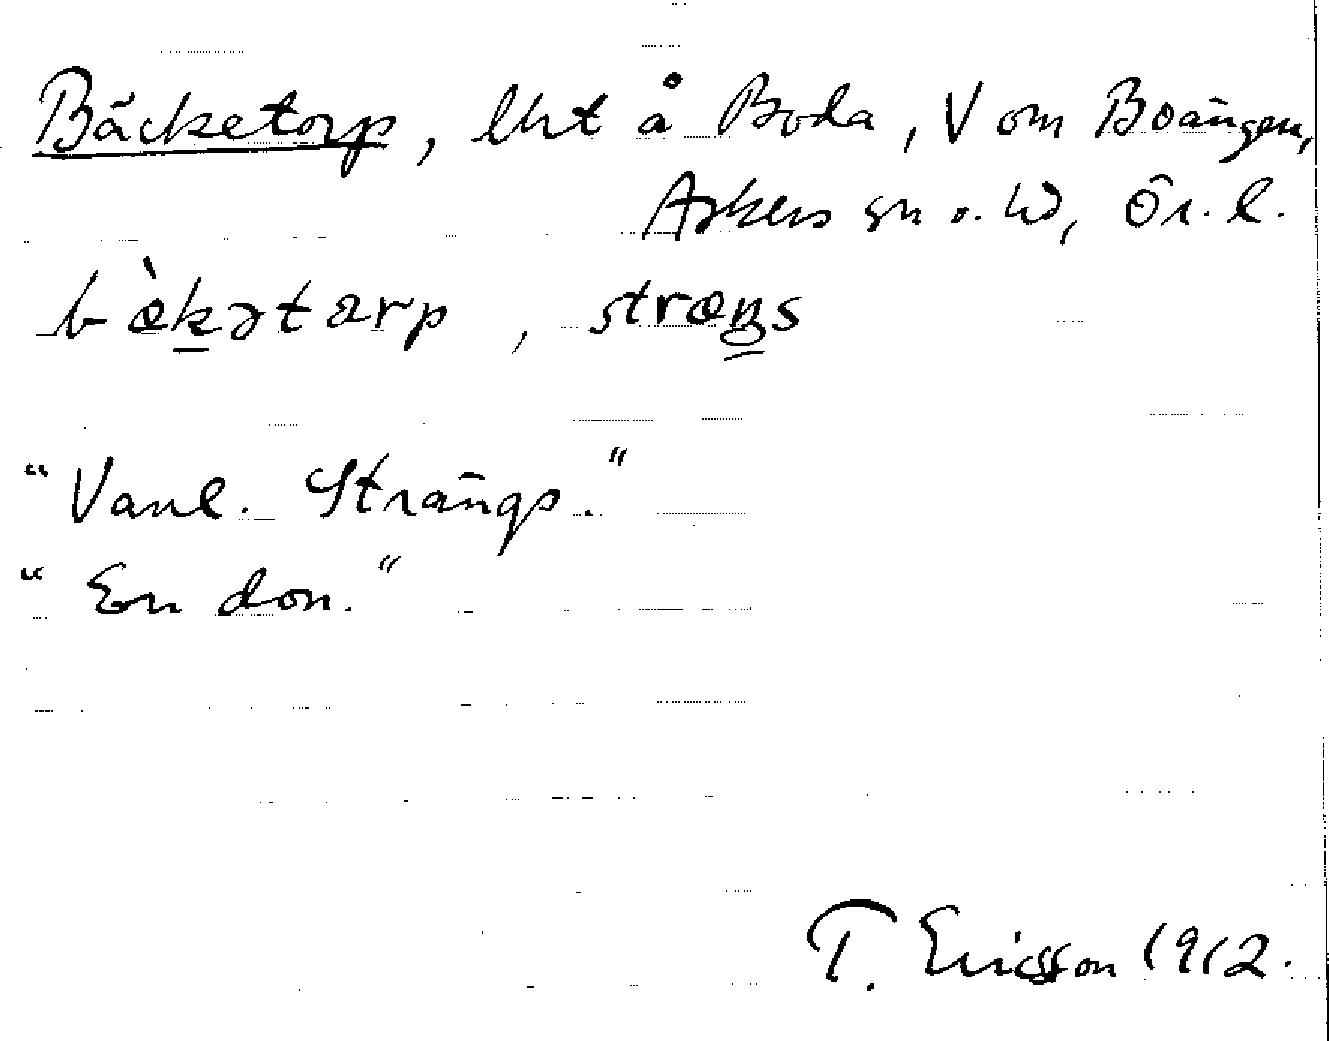 Bäcketorp, lht å Boda, V om Boängen,
Askers sn o. hd, Ör. l.
bæ̀kətarp, stræŋs
"Vanl. Strängs."
"En don."
T. Ericsson 1912.